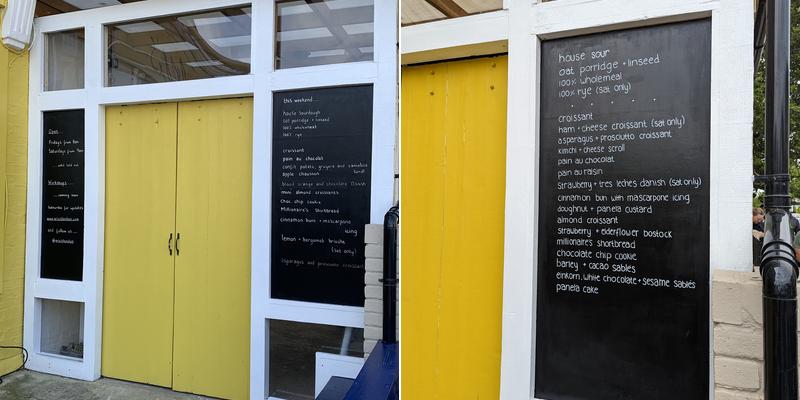 Open....
Fridays from 9am
Saturdays from 9am
this weekend....
house sourdough
oat porridge + linseed
100% wholewheat
100% rye
croissant
pain au chocolat
confit potato, gruyere and camelised
apple chausson
blood orange and chocolate Danish
mini almond croissants
choc chip cookie
Millionaire's Shortbread
cinnamon buns + mascarpone
icing
lemon + bergamot brioche
(sat only)
asparagus and prosciutto croissant
and follow us....
house sour
oat porridge + linseed
100% wholemeal
100% rye (sat only)
croissant
ham + cheese croissant (sat only)
asparagus + prosciutto croissant
kimchi + cheese scroll
pain au chocolat
pain au raisin
strawberry + tres leches danish (sat only)
cinnamon bun with mascarpone icing
doughnut + panela custard
almond croissant
strawberry + elderflower bostock
millionaires shortbread
chocolate chip cookie
barley + cacao sables
einkorn, white chocolate + sesame sablés
panela cake